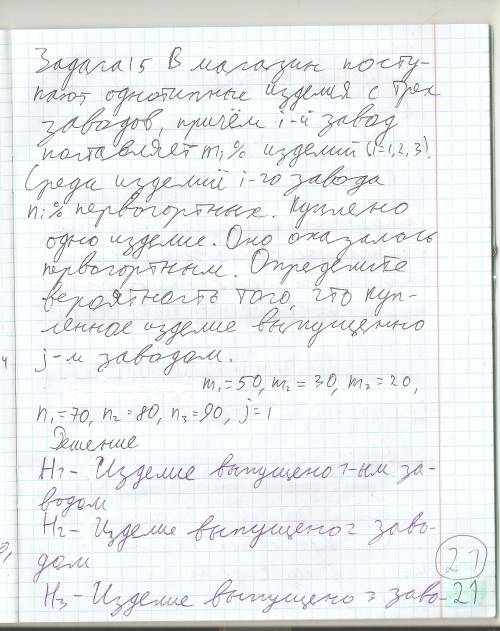 Задача 15 В магазин посту-
пают однотипные изделия с трех
заводов, причём i-й завод
поставляет mi% изделий (i=1,2,3).
Среди изделий i-го завода
ni% первосортных. Куплено
одно изделие. Оно оказалось
первосортным. Определите
вероятность того, что куп-
ленное изделие выпущенно
j-м заводом.
m1=50, m2=30, m3=20,
n1=70, n2=80, n3=90, j=1
Решение
H1- Изделие выпущено 1-ым за-
водом
H2- Изделие выпущено 2 заво-
дом
H3- Изделие выпущено 3 заво-
21
21